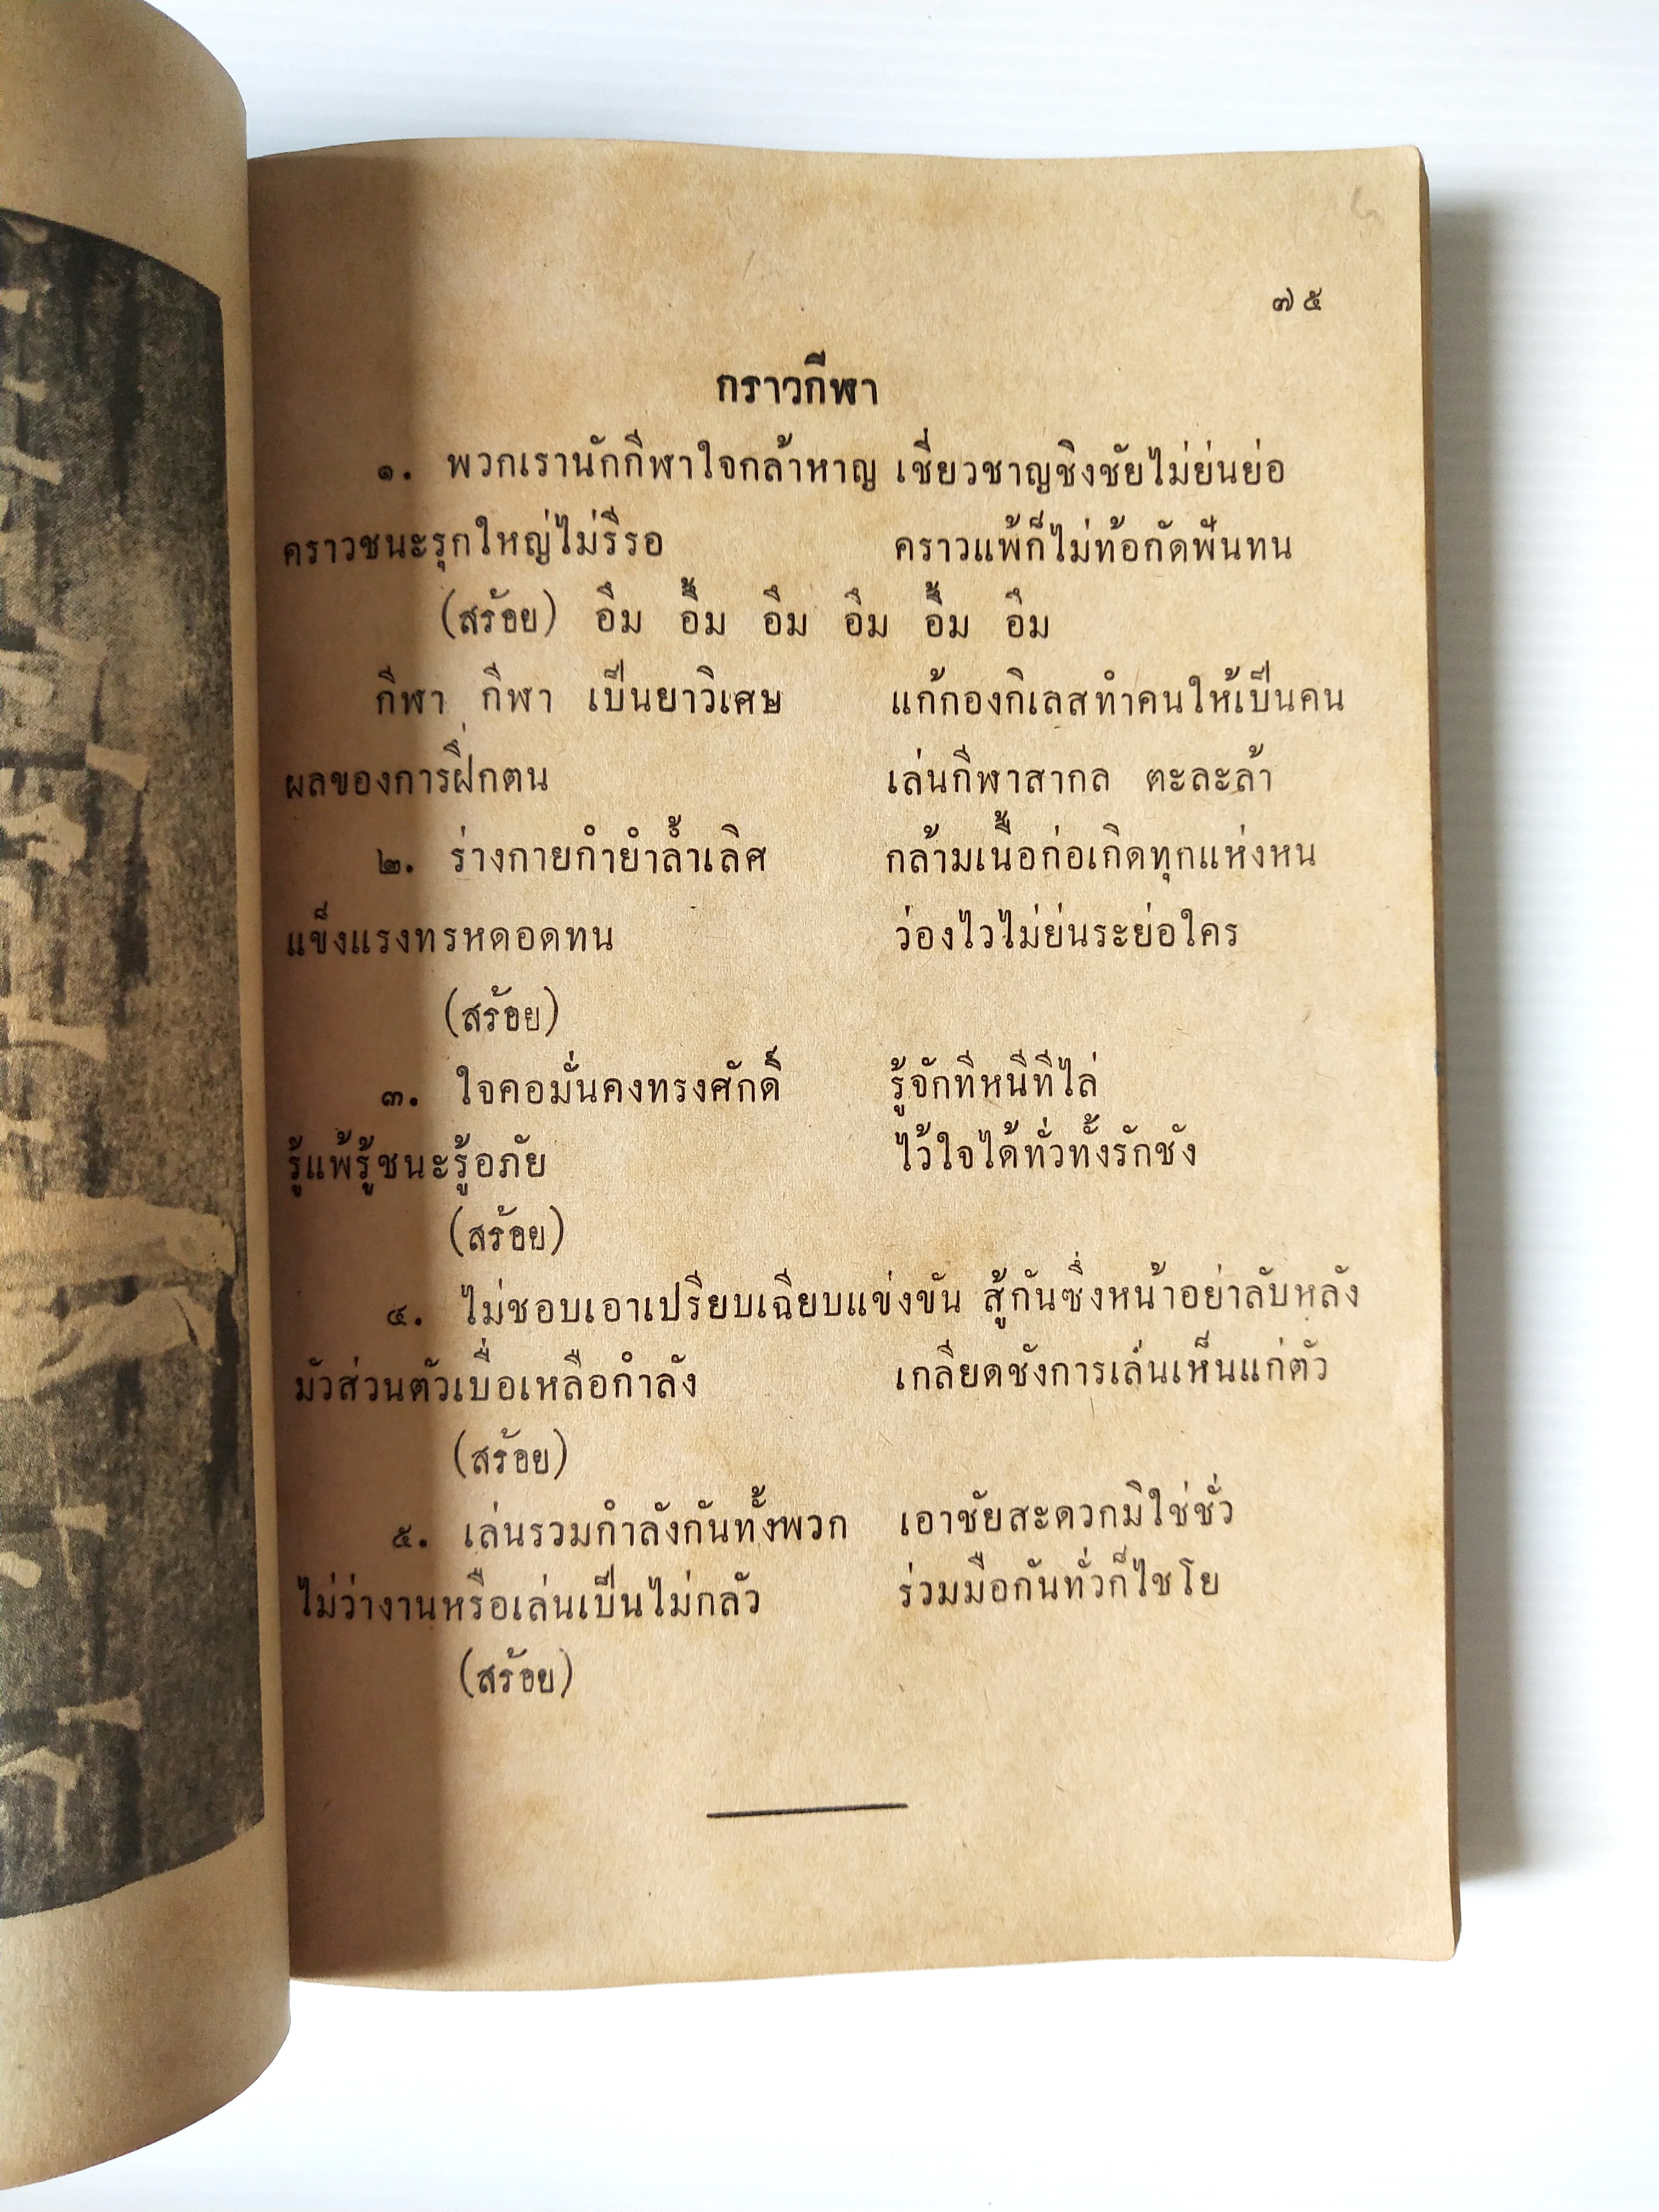 ๗๕
กราวกีฬา
๑. พวกเรานักกีฬาใจกล้าหาญ เชี่ยวชาญชิงชัยไม่ย่นย่อ
คราวชนะรุกใหญ่ไม่รีรอ คราวแพ้ก็ไม่ท้อกัดฟันทน
(สร้อย) อึม อึ้ม อึม อึม อึ้ม อึม
กีฬา กีฬา เป็นยาวิเศษ แก้กองกิเลสทำคนให้เป็นคน
ผลของการฝึ่กตน เล่นกีฬาสากล ตะละล้า
๒. ร่างกายกำยำล้ำเลิศ กล้ามเนื้อก่อเกิดทุกแห่งหน
แข็งแรงทรหดอดทน ว่องไวไม่ย่นระย่อใคร
(สร้อย)
๓. ใจคอมั่นคงทรงศักดิ์ รู้จักทีหนีทีไล่
รู้แพ้รู้ชนะรู้อภัย ไว้ใจได้ทั่วทั้งรักชัง
(สร้อย)
๔. ไม่ชอบเอาเปรียบเฉียบแข่งขัน สู้กันซึ่งหน้าอย่าลับหลัง
มัวส่วนตัวเบื่อเหลือกำลัง เกลียดชังการเล่นเห็นแก่ตัว
(สร้อย)
๕. เล่นรวมกำลังกันทั้งพวก เอาชัยสะดวกมิใช่ชั่ว
ไม่ว่างานหรือเล่นเป็นไม่กลัว ร่วมมือกันทั่วก็ไชโย
(สร้อย)